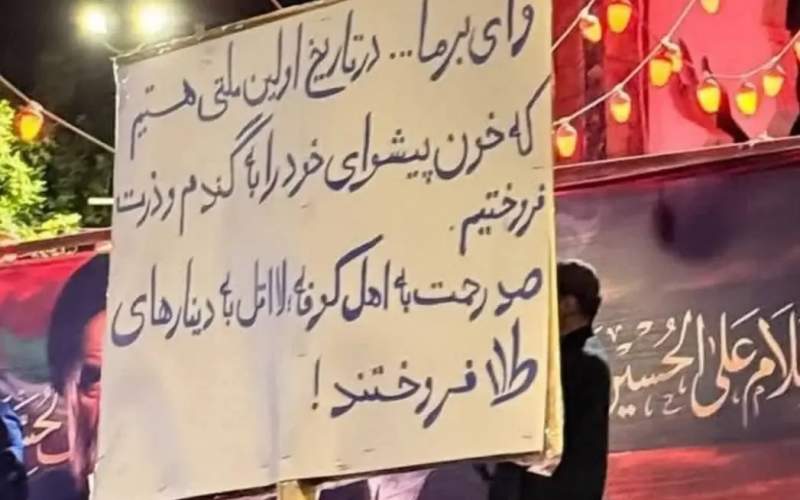 وای بر ما... در تاریخ اولین ملتی هستیم
که خون پیشوای خود را به گندم و ذرت
فروختیم.
صد رحمت به اهل کوفه، لااقل به دینارهای
طلا فروختند!
لَام عَلَی الحُسَین